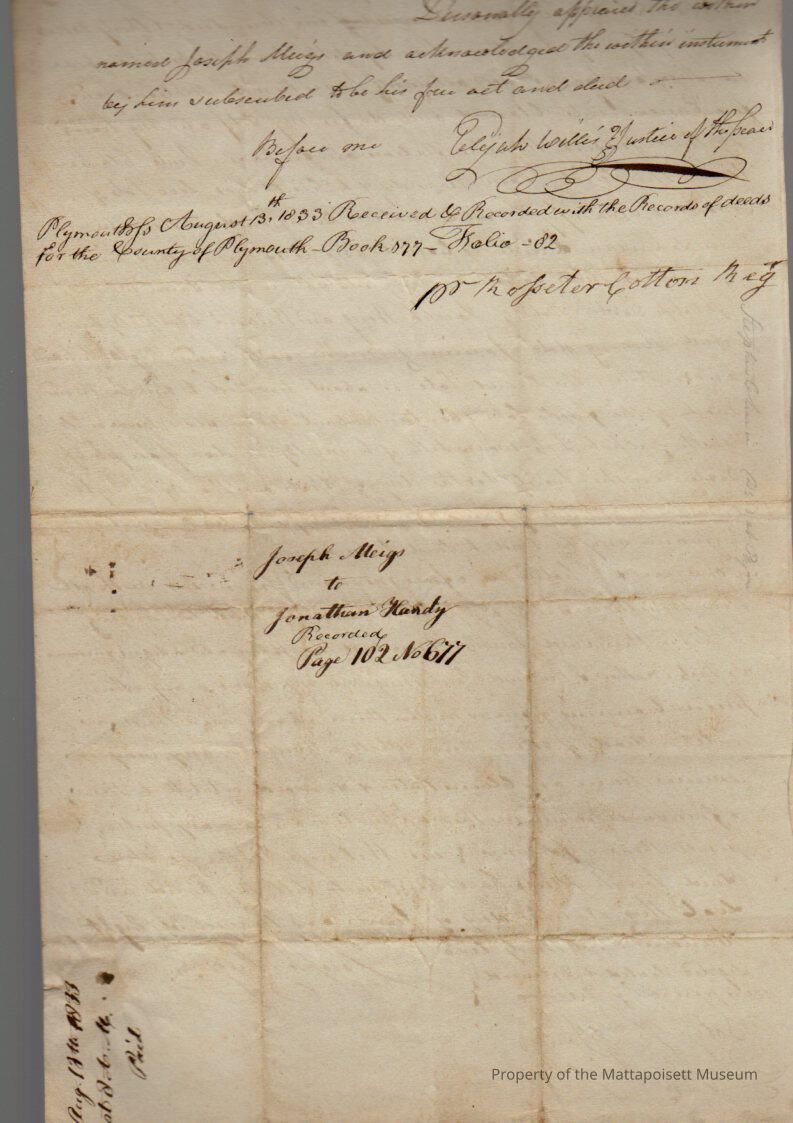 Personally appeared the within
named Joseph Meigs and acknowledged the within instrument
by him subscribed to be his free act and deed
Before me Elijah Willis Justice of the peace
Plymouth Ss August 13th 1833 Received & Recorded with the Records of deeds
for the County of Plymouth - Book 177 - Folio - 82
pr Rosseter Cotton Regr
Joseph Meigs
to
Jonathan Handy
Recorded
Page 102 No 677
Aug 13th 1833
at 8 A. M.
Paid
Property of the Mattapoisett Museum